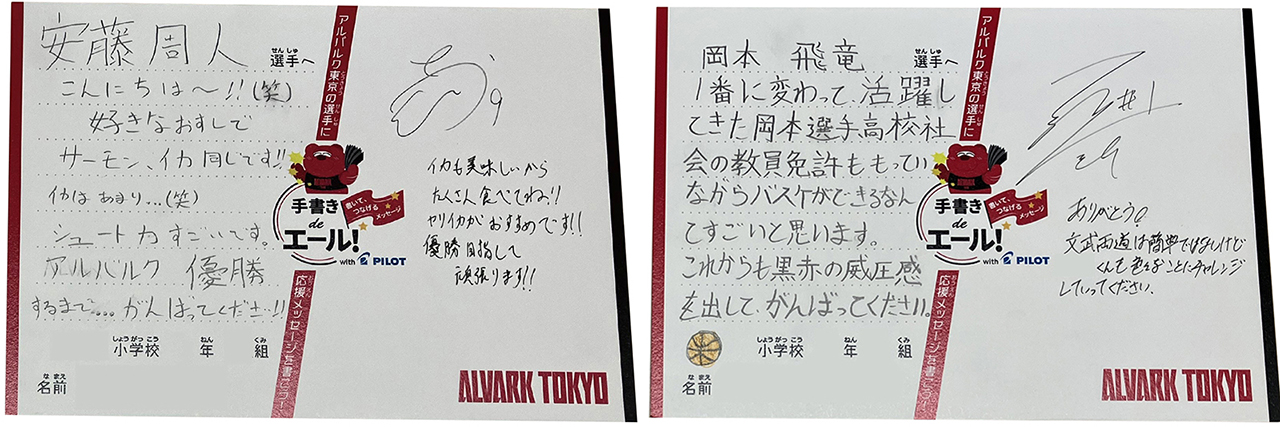 安藤 周人
選手へ
せんしゅ
こんにちは〜!!(笑)
好きなおすしで
サーモン、イカ同じです!!
イカは あまり...(笑)
シュート力すごいです。
アルバルク 優勝
するまで....がんばってください!!
しょうがっこう ねん くみ
小学校 年 組
なまえ
名前
アルバルク東京の選手に
とうきょう せんしゅ
手書き
de
エール!
書いて、
つなげる
メッセージ
with PILOT
応援メッセージを書こう!
おうえん
9
イカも美味しいから
たくさん食べてね!!
ヤリイカがおすすめです!!
優勝目指して
頑張ります!!
ALVARK TOKYO
岡本 飛竜
選手へ
せんしゅ
1番に変わって、活躍し
てきた岡本選手、高校社
会の教員免許ももってい
ながらバスケができるなん
てすごいと思います。
これからも黒赤の威圧感
を出して、がんばってください。
しょうがっこう ねん くみ
小学校 年 組
なまえ
名前
アルバルク東京の選手に
とうきょう せんしゅ
手書き
de
エール!
書いて、
つなげる
メッセージ
with PILOT
応援メッセージを書こう!
おうえん
ありがとう!
文武両道は簡単ではないけど
ことにチャレンジ
していってください、
ALVARK TOKYO